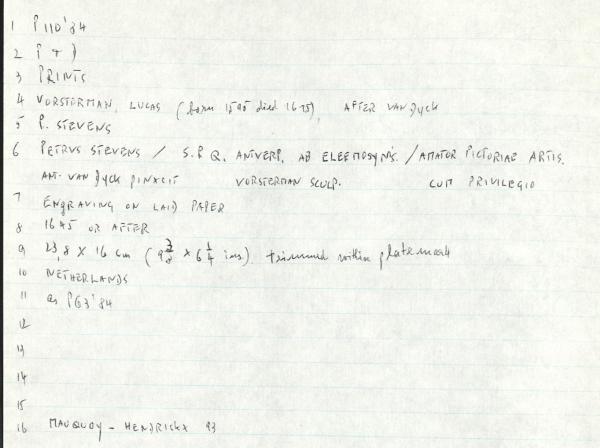 1 P 110'84
2 P + D
3 PRINTS
4 VORSTERMAN, LUCAS (born 1595 died 1675), AFTER VAN DYCK
5 P. STEVENS
6 PETRVS STEVENS / S.P.Q. ANTVERP. AB ELEEMOSYNIS. / AMATOR PICTORIAE ARTIS.
ANT. VAN DYCK PINXIT VORSTERMAN SCULP. CUM PRIVILEGIO
7 ENGRAVING ON LAID PAPER
8 1645 OR AFTER
9 23,8 X 16 cm (9 3/8 X 6 1/4 ins) trimmed within platemark
10 NETHERLANDS
11 as P63'84
12
13
14
15
16 MAUQUOY - HENDRICKX 93